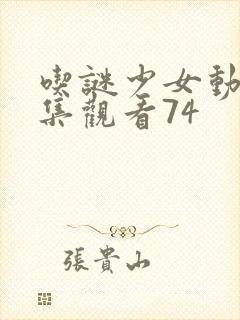 喫謎少女動
集觀看74
張貴山